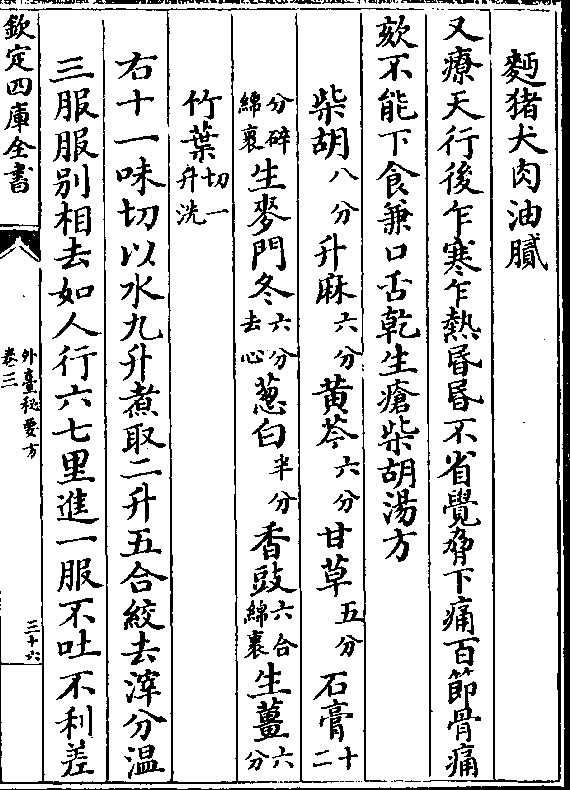 麪猪犬肉油膩
又療天行後乍寒乍熱昬昬不省覺脅下痛百節骨痛
欬不能下食兼口舌乾生瘡柴胡湯方
柴胡八分升麻六分黄芩六分甘草五分石膏十二
分碎綿裹生麥門冬六分去心葱白半分香豉六合綿裹生薑六分
竹葉切一升洗
右十一味切以水九升煮取二升五合絞去滓分温
三服服别相去如人行六七里進一服不吐不利差
欽定四庫全書
外臺秘要方
卷三
三十六